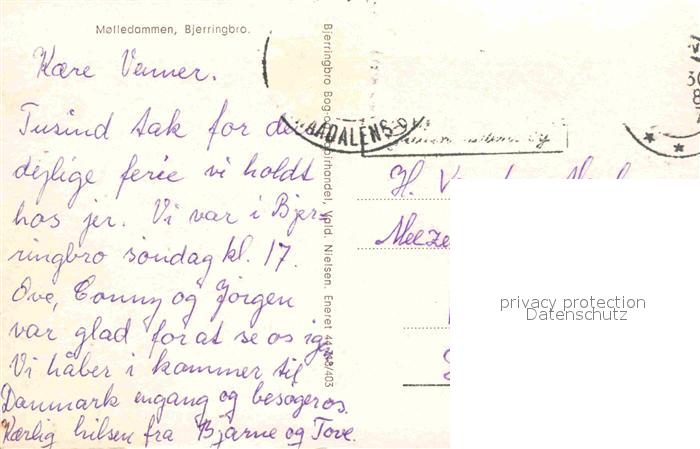 Mølledammen, Bjerringbro.
Kære Venner.
Tusind tak for den
dejlige ferie vi holdt
hos jer. Vi var i Bjer-
ringbro søndag kl. 17.
Ove, Conny og Jørgen
var glad for at se os igen
Vi håber i kommer til
Danmark engang og besøger os.
Kærlig hilsen fra Bjarne og Tove.
Bjerringbro Bog- og Papirhandel, Vald. Nielsen. Eneret 44298/403
AADALENS
30
8
H.
privacy protection
Datenschutz